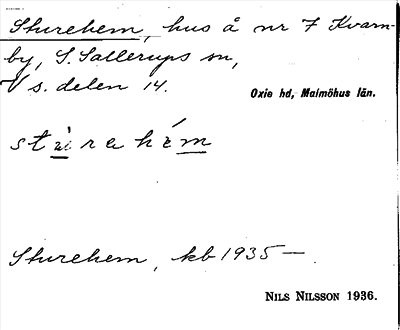 Sturehem, hus å nr 7 Kvarn-
by, S. Sallerups sn,
V s. delen 14.
Oxie hd, Malmöhus län.
Sturehem, kb 1935 —
NILS NILSSON 1936.